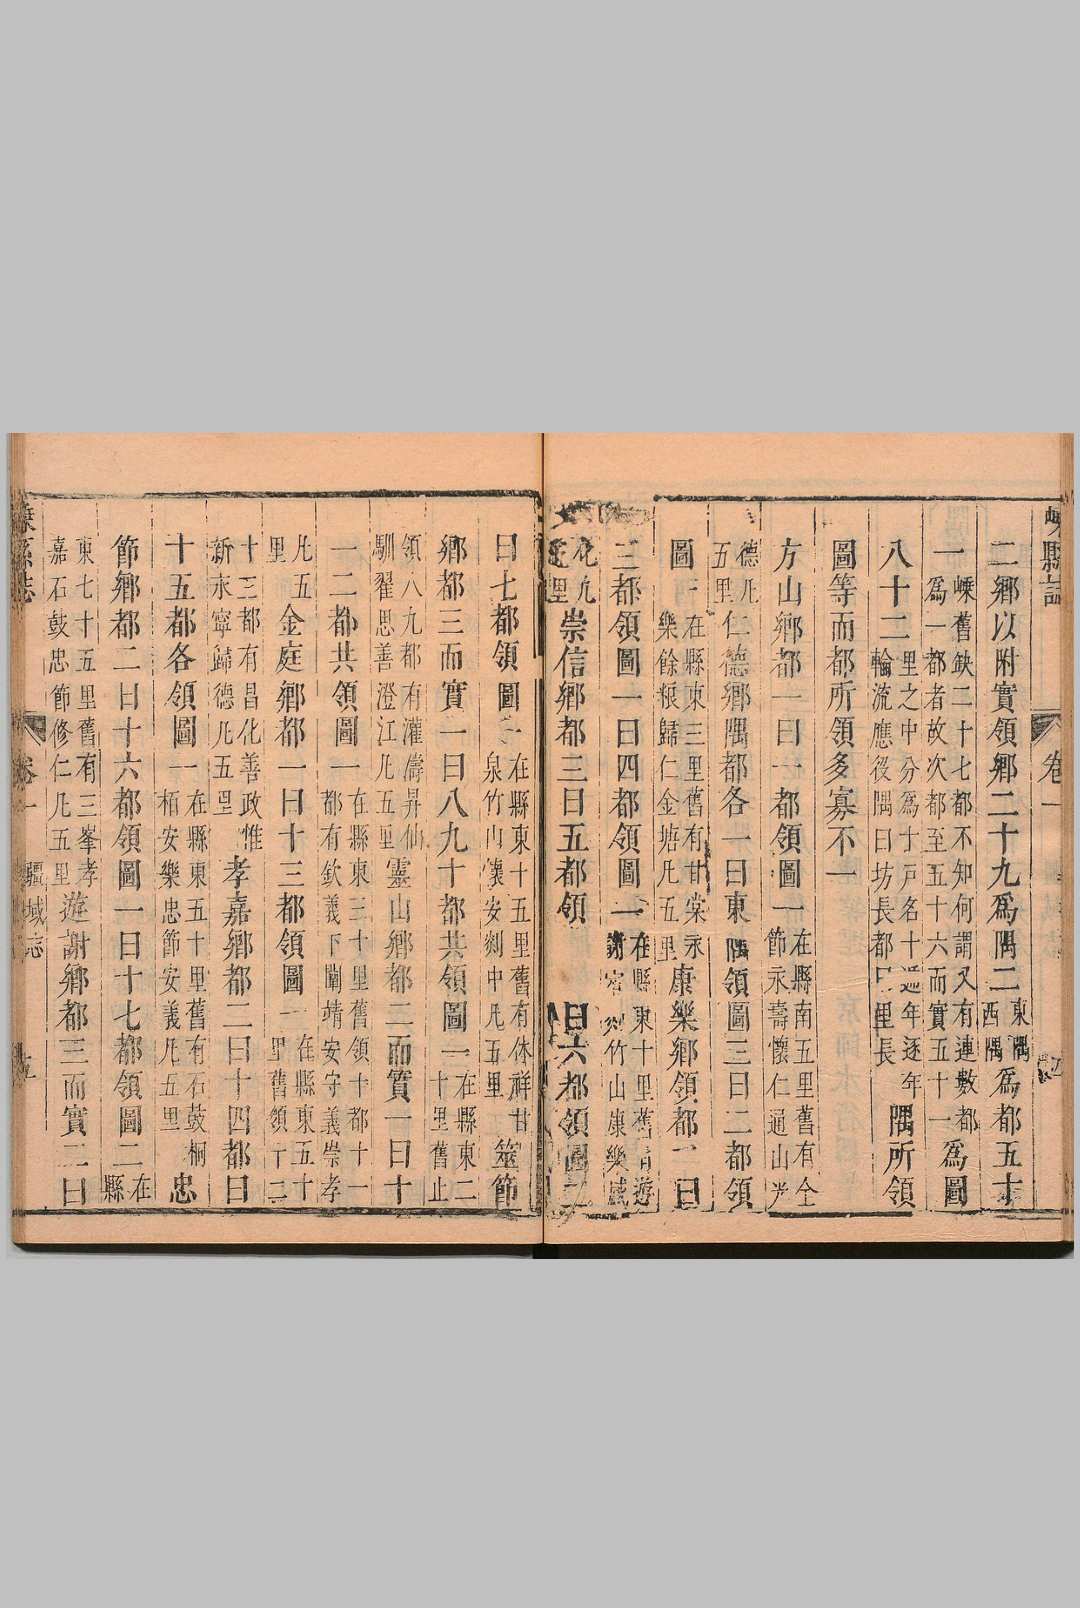 嵊縣誌
卷一
二鄉以附實領鄉二十九爲隅二東隅西隅爲都五十
一嵊舊缺二十七都不知何謂又有連數都爲一都者故次都至五十六而實五十一爲圖
八十二里之中分爲十戶名十遞年逐年輪流應役隅曰坊長都曰里長隅所領
圖等而都所領多寡不一
方山鄉都一曰一都領圖一在縣南五里舊有全節永壽懷仁通山光
德凡五里仁德鄉隅都各一曰東隅領圖三曰二都領
圖三在縣東三里舊有甘棠永樂餘糧歸仁金塘凡五里康樂鄉領都一曰
三都領圖一曰四都領圖一在縣東十里舊遊謝宕竹山康樂感
化凡九里崇信鄉都三曰五都領曰六都領圖二
曰七都領圖一在縣東十五里舊有休祥甘泉竹山懷安剡中凡五里筮節
鄉都三而實一曰八九十都共領圖一在縣東二十里舊止
領八九都有灌濤昇仙馴翟思善澄江凡五里靈山鄉都二而實一曰十
一二都共領圖一在縣東三十里舊領十都十一都有欽義下闈靖安守義崇孝
凡五里金庭鄉都一曰十三都領圖一在縣東五十里舊領十二
十三都有昌化善政惟新永寧歸德凡五里孝嘉鄉都二曰十四都曰
十五都各領圖一在縣東五十里舊有石鼓桐柏安樂忠節安義凡五里忠
節鄉都二曰十六都領圖一曰十七都領圖二在縣
東七十五里舊有三峯孝嘉石鼓忠節修仁凡五里遊謝鄉都三而實二曰
卷一
疆域志
五